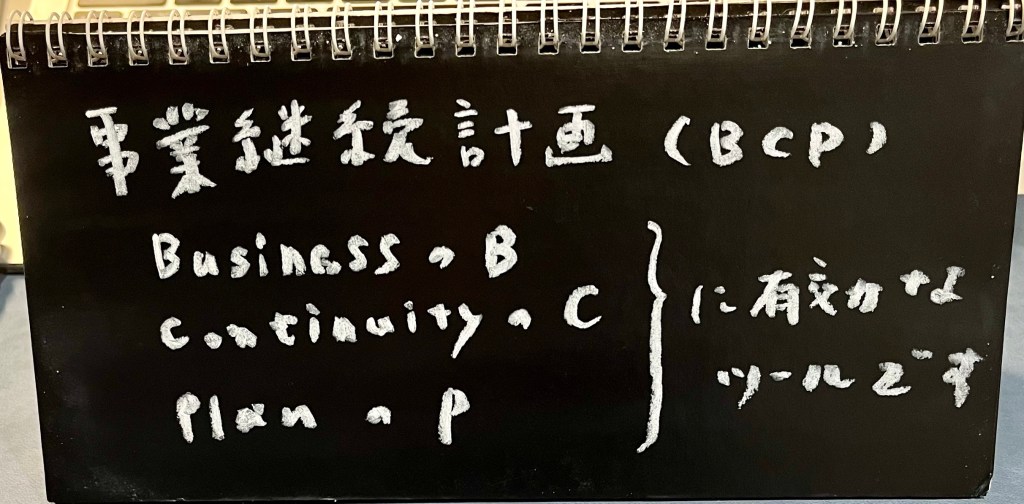 事業継続計画（BCP）
Business の B
Continuity の C
Plan の P
に有効な
ツールです